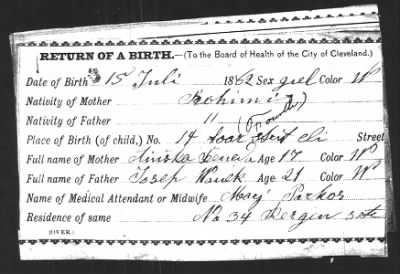 RETURN OF A BIRTH.—(To the Board of Health of the City of Cleveland.)
Date of Birth 15 Juli 1882 Sex girl Color W
Nativity of Mother Bohimi
Nativity of Father "
Place of Birth (of child,) No. 14 Street
Full name of Mother Age 17 Color W
Full name of Father Josep Age 21 Color W
Name of Medical Attendant or Midwife Mary Parkos
Residence of same No 34
(OVER.)